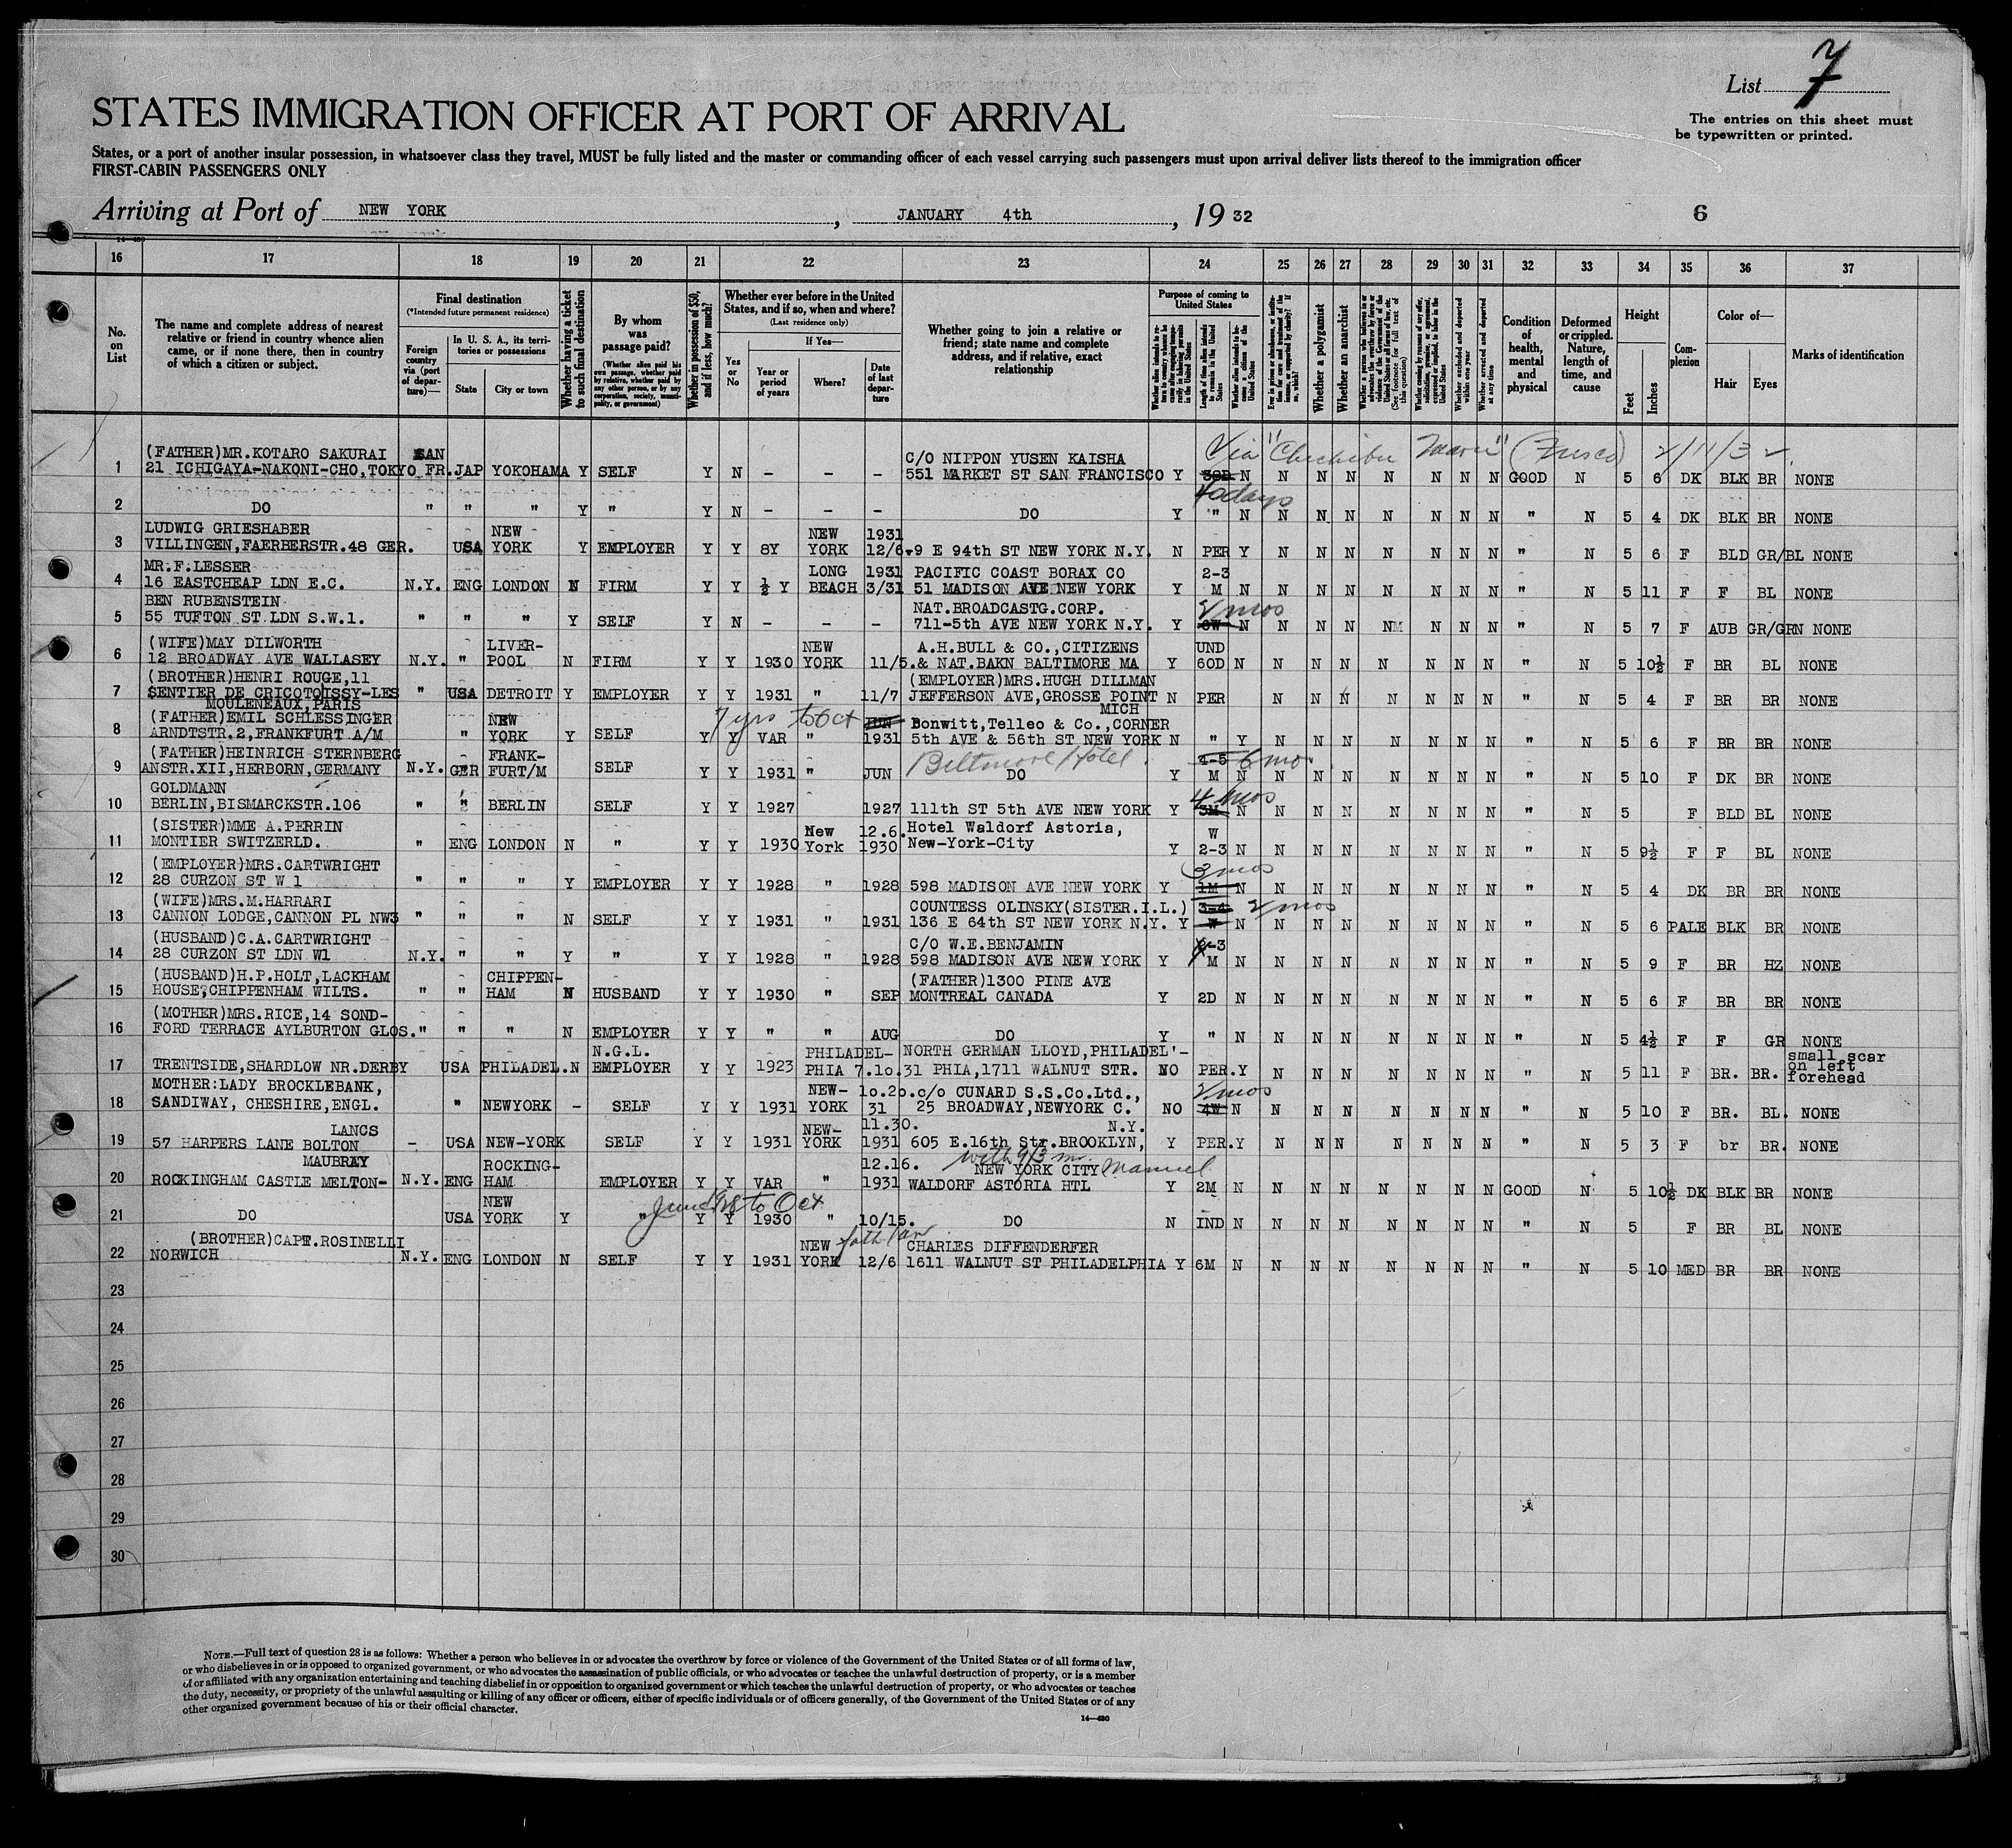 List 7
The entries on this sheet must
be typewritten or printed.
STATES IMMIGRATION OFFICER AT PORT OF ARRIVAL
States, or a port of another insular possession, in whatsoever class they travel, MUST be fully listed and the master or commanding officer of each vessel carrying such passengers must upon arrival deliver lists thereof to the immigration officer
FIRST-CABIN PASSENGERS ONLY
Arriving at Port of NEW YORK, JANUARY 4th, 19 32 6
16 17 18 19 20 21 22 23 24 25 26 27 28 29 30 31 32 33 34 35 36 37
No. on List
The name and complete address of nearest relative or friend in country whence alien came, or if none there, then in country of which a citizen or subject.
Final destination
(*Intended future permanent residence)
Foreign country via (port of departure)—
In U. S. A., its territories or possessions
State
City or town
Whether having a ticket to such final destination
By whom was passage paid?
(Whether alien paid his own passage, whether paid by relative, whether paid by any other person, or by any corporation, society, municipality, or government)
Whether in possession of $50, and if less, how much?
Whether ever before in the United States, and if so, when and where?
(Last residence only)
Yes or No
If Yes—
Year or period of years
Where?
Date of last departure
Whether going to join a relative or friend; state name and complete address, and if relative, exact relationship
Purpose of coming to United States
Length of time alien intends to remain in the United States
Whether alien intends to become a citizen of the United States
Whether a polygamist
Whether an anarchist
(See footnote for full text of this question)
Whether excluded and deported within one year
Whether arrested and deported at any time
Condition of health, mental and physical
Deformed or crippled. Nature, length of time, and cause
Height
Feet
Inches
Complexion
Color of—
Hair
Eyes
Marks of identification
Via "Chichibu Maru" (Frisco) 2/11/32
1 (FATHER)MR.KOTARO SAKURAI SAN C/O NIPPON YUSEN KAISHA
21 ICHIGAYA-NAKONI-CHO,TOKYO FR. JAP YOKOHAMA Y SELF Y N - - - 551 MARKET ST SAN FRANCISCO Y 30D N N N N N N N N GOOD N 5 6 DK BLK BR NONE
40days
2 DO " " " Y " Y N - - - DO Y " N N N N N N N N " N 5 4 DK BLK BR NONE
3 LUDWIG GRIESHABER NEW NEW 1931
VILLINGEN,FAERBERSTR.48 GER. USA YORK Y EMPLOYER Y Y 8Y YORK 12/6 9 E 94th ST NEW YORK N.Y. N PER Y N N N N N N N " N 5 6 F BLD GR/BL NONE
4 MR.F.LESSER LONG 1931 PACIFIC COAST BORAX CO 2-3
16 EASTCHEAP LDN E.C. N.Y. ENG LONDON N FIRM Y Y ½ Y BEACH 3/31 51 MADISON AVE NEW YORK Y M N N N N N N N N " N 5 11 F F BL NONE
5 BEN RUBENSTEIN NAT.BROADCASTG.CORP. 2 mos
55 TUFTON ST LDN S.W.1. " " " Y SELF Y N - - - 711-5th AVE NEW YORK N.Y. Y 6W N N N N N N N N " N 5 7 F AUB GR/GRN NONE
6 (WIFE)MAY DILWORTH LIVER- NEW A.H.BULL & CO.,CITIZENS UND
12 BROADWAY AVE WALLASEY N.Y. " POOL N FIRM Y Y 1930 YORK 11/5. & NAT.BAKN BALTIMORE MA Y 60D N N N N N N N N " N 5 10½ F BR BL NONE
7 (BROTHER)HENRI ROUGE,11 (EMPLOYER)MRS.HUGH DILLMAN
SENTIER DE CRICOTOISSY-LES " USA DETROIT Y EMPLOYER Y Y 1931 " 11/7 JEFFERSON AVE,GROSSE POINT N PER N N N N N N N " N 5 4 F BR BR NONE
MOULENEAUX,PARIS MICH
8 (FATHER)EMIL SCHLESSINGER NEW 7 yrs to Oct JUN Bonwitt,Telleo & Co.,CORNER
ARNDTSTR.2,FRANKFURT A/M " YORK Y SELF Y Y VAR " 1931 5th AVE & 56th ST NEW YORK N " Y N N N N N N N " N 5 6 F BR BR NONE
9 (FATHER)HEINRICH STERNBERG FRANK- Biltmore Hotel 4-5 6 mo.
ANSTR.XII,HERBORN,GERMANY N.Y. GER FURT/M SELF Y Y 1931 " JUN DO Y M N N N N N N N N " N 5 10 F DK BR NONE
10 GOLDMANN 4 mos
BERLIN,BISMARCKSTR.106 " " BERLIN SELF Y Y 1927 1927 111th ST 5th AVE NEW YORK Y 3M N N N N N N N N " N 5 F BLD BL NONE
11 (SISTER)MME A.PERRIN New 12.6. Hotel Waldorf Astoria, W
MONTIER SWITZERLD. " ENG LONDON N " Y Y 1930 York 1930 New-York-City Y 2-3 N N N N N N N N " N 5 9½ F F BL NONE
12 (EMPLOYER)MRS.CARTWRIGHT 3 mos
28 CURZON ST W 1 " " " Y EMPLOYER Y Y 1928 " 1928 598 MADISON AVE NEW YORK Y 1M N N N N N N N N " N 5 4 DK BR BR NONE
13 (WIFE)MRS.M.HARRARI COUNTESS OLINSKY(SISTER.I.L.) 3-4 2 mos
CANNON LODGE,CANNON PL NW3 " " " N SELF Y Y 1931 " 1931 136 E 64th ST NEW YORK N.Y. Y W N N N N N N N N " N 5 6 PALE BLK BR NONE
14 (HUSBAND)C.A.CARTWRIGHT C/O W.E.BENJAMIN 2-3
28 CURZON ST LDN W1 N.Y. " " Y " Y Y 1928 " 1928 598 MADISON AVE NEW YORK Y M N N N N N N N N " N 5 9 F BR HZ NONE
15 (HUSBAND)H.P.HOLT,LACKHAM CHIPPEN- (FATHER)1300 PINE AVE
HOUSE,CHIPPENHAM WILTS. " " HAM N HUSBAND Y Y 1930 " SEP MONTREAL CANADA Y 2D N N N N N N N N " N 5 6 F BR BR NONE
16 (MOTHER)MRS.RICE,14 SOND-
FORD TERRACE AYLBURTON GLOS. " " " N EMPLOYER Y Y " " AUG DO Y " N N N N N N N N " N 5 4½ F F GR NONE
17 N.G.L. PHILADEL- NORTH GERMAN LLOYD,PHILADEL'- small scar on left forehead
TRENTSIDE,SHARDLOW NR.DERBY USA PHILADEL. N EMPLOYER Y Y 1923 PHIA 7.10.31 PHIA,1711 WALNUT STR. NO PER. Y N N N N N N N " N 5 11 F BR. BR.
18 MOTHER:LADY BROCKLEBANK, NEW- 10.20. c/o CUNARD S.S.Co.Ltd., 2 mos
SANDIWAY, CHESHIRE,ENGL. " NEWYORK - SELF Y Y 1931 YORK 31 25 BROADWAY,NEWYORK C. NO 4W N N N N N N N N " N 5 10 F BR. BL. NONE
19 LANCS NEW- 11.30. N.Y.
57 HARPERS LANE BOLTON - USA NEW-YORK SELF Y Y 1931 YORK 1931 605 E.16th Str.BROOKLYN, Y PER. Y N N N N N N N " N 5 3 F br BR. NONE
20 MAUBRAY ROCKING- 12.16. NEW YORK CITY
ROCKINGHAM CASTLE MELTON- N.Y. ENG HAM EMPLOYER Y Y VAR " 1931 WALDORF ASTORIA HTL Y 2M N N N N N N N N GOOD N 5 10½ DK BLK BR NONE
21 NEW June 1928 to Oct
DO USA YORK Y " Y Y 1930 " 10/15. DO N IND N N N N N N N N " N 5 F BR BL NONE
22 (BROTHER)CAPT.ROSINELLI NEW CHARLES DIFFENDERFER
NORWICH N.Y. ENG LONDON N SELF Y Y 1931 YORK 12/6 1611 WALNUT ST PHILADELPHIA Y 6M N N N N N N N N " N 5 10 MED BR BR NONE
23
24
25
26
27
28
29
30
NOTE.—Full text of question 28 is as follows: Whether a person who believes in or advocates the overthrow by force or violence of the Government of the United States or of all forms of law,
or who disbelieves in or is opposed to organized government, or who advocates the assassination of public officials, or who advocates or teaches the unlawful destruction of property, or is a member
of or affiliated with any organization entertaining and teaching disbelief in or opposition to organized government or which teaches the unlawful destruction of property, or who advocates or teaches
the duty, necessity, or propriety of the unlawful assaulting or killing of any officer or officers, either of specific individuals or of officers generally, of the Government of the United States or of any
other organized government because of his or their official character.
14—430